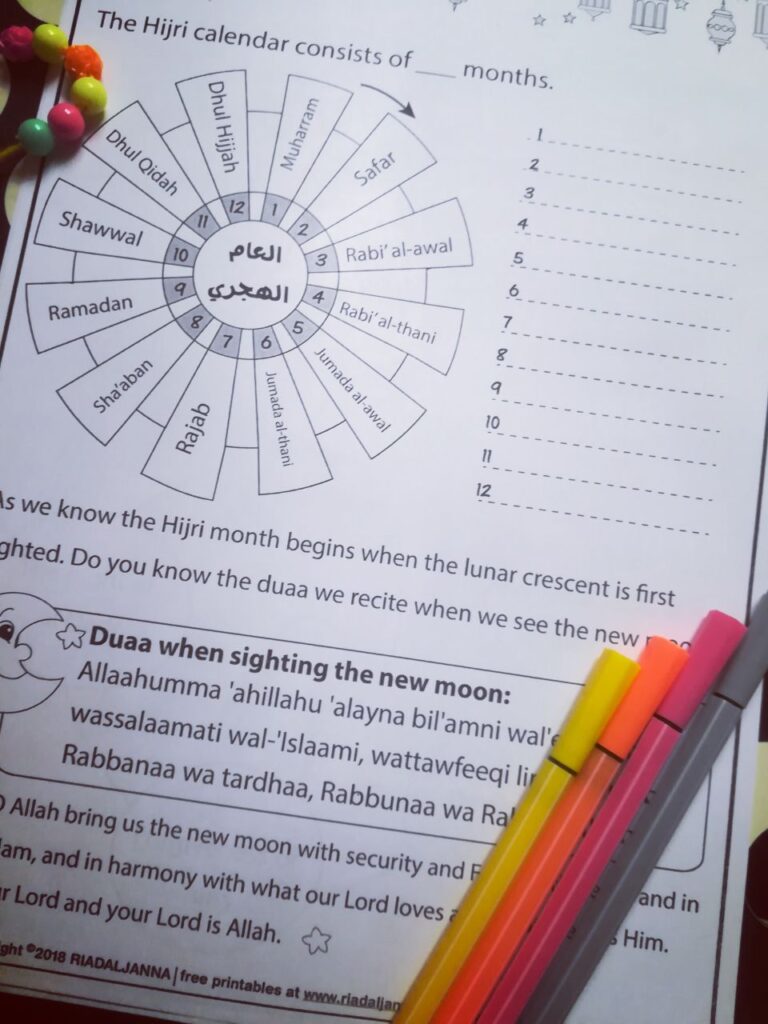 The Hijri calendar consists of ____ months.
Muharram
Safar
Rabi' al-awal
Rabi' al-thani
Jumada al-awal
Jumada al-thani
Rajab
Sha'aban
Ramadan
Shawwal
Dhul Qidah
Dhul Hijjah
1
2
3
4
5
6
7
8
9
10
11
12
العام
الهجري
1
2
3
4
5
6
7
8
9
10
11
12
As we know the Hijri month begins when the lunar crescent is first
ghted. Do you know the duaa we recite when we see the new
Duaa when sighting the new moon:
Allaahumma 'ahillahu 'alayna bil'amni
wassalaamati wal-'Islaami, wattawfeeqi
Rabbanaa wa tardhaa, Rabbunaa wa
O Allah bring us the new moon with security and
lam, and in harmony with what our Lord loves and in
r Lord and your Lord is Allah. Him.
ght ©2018 RIADALJANNA | free printables at www.riadaljan